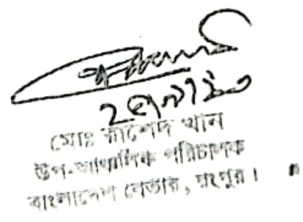 মোঃ রাশেদ খান
উপ-আঞ্চলিক পরিচালক
বাংলাদেশ বেতার, রংপুর।